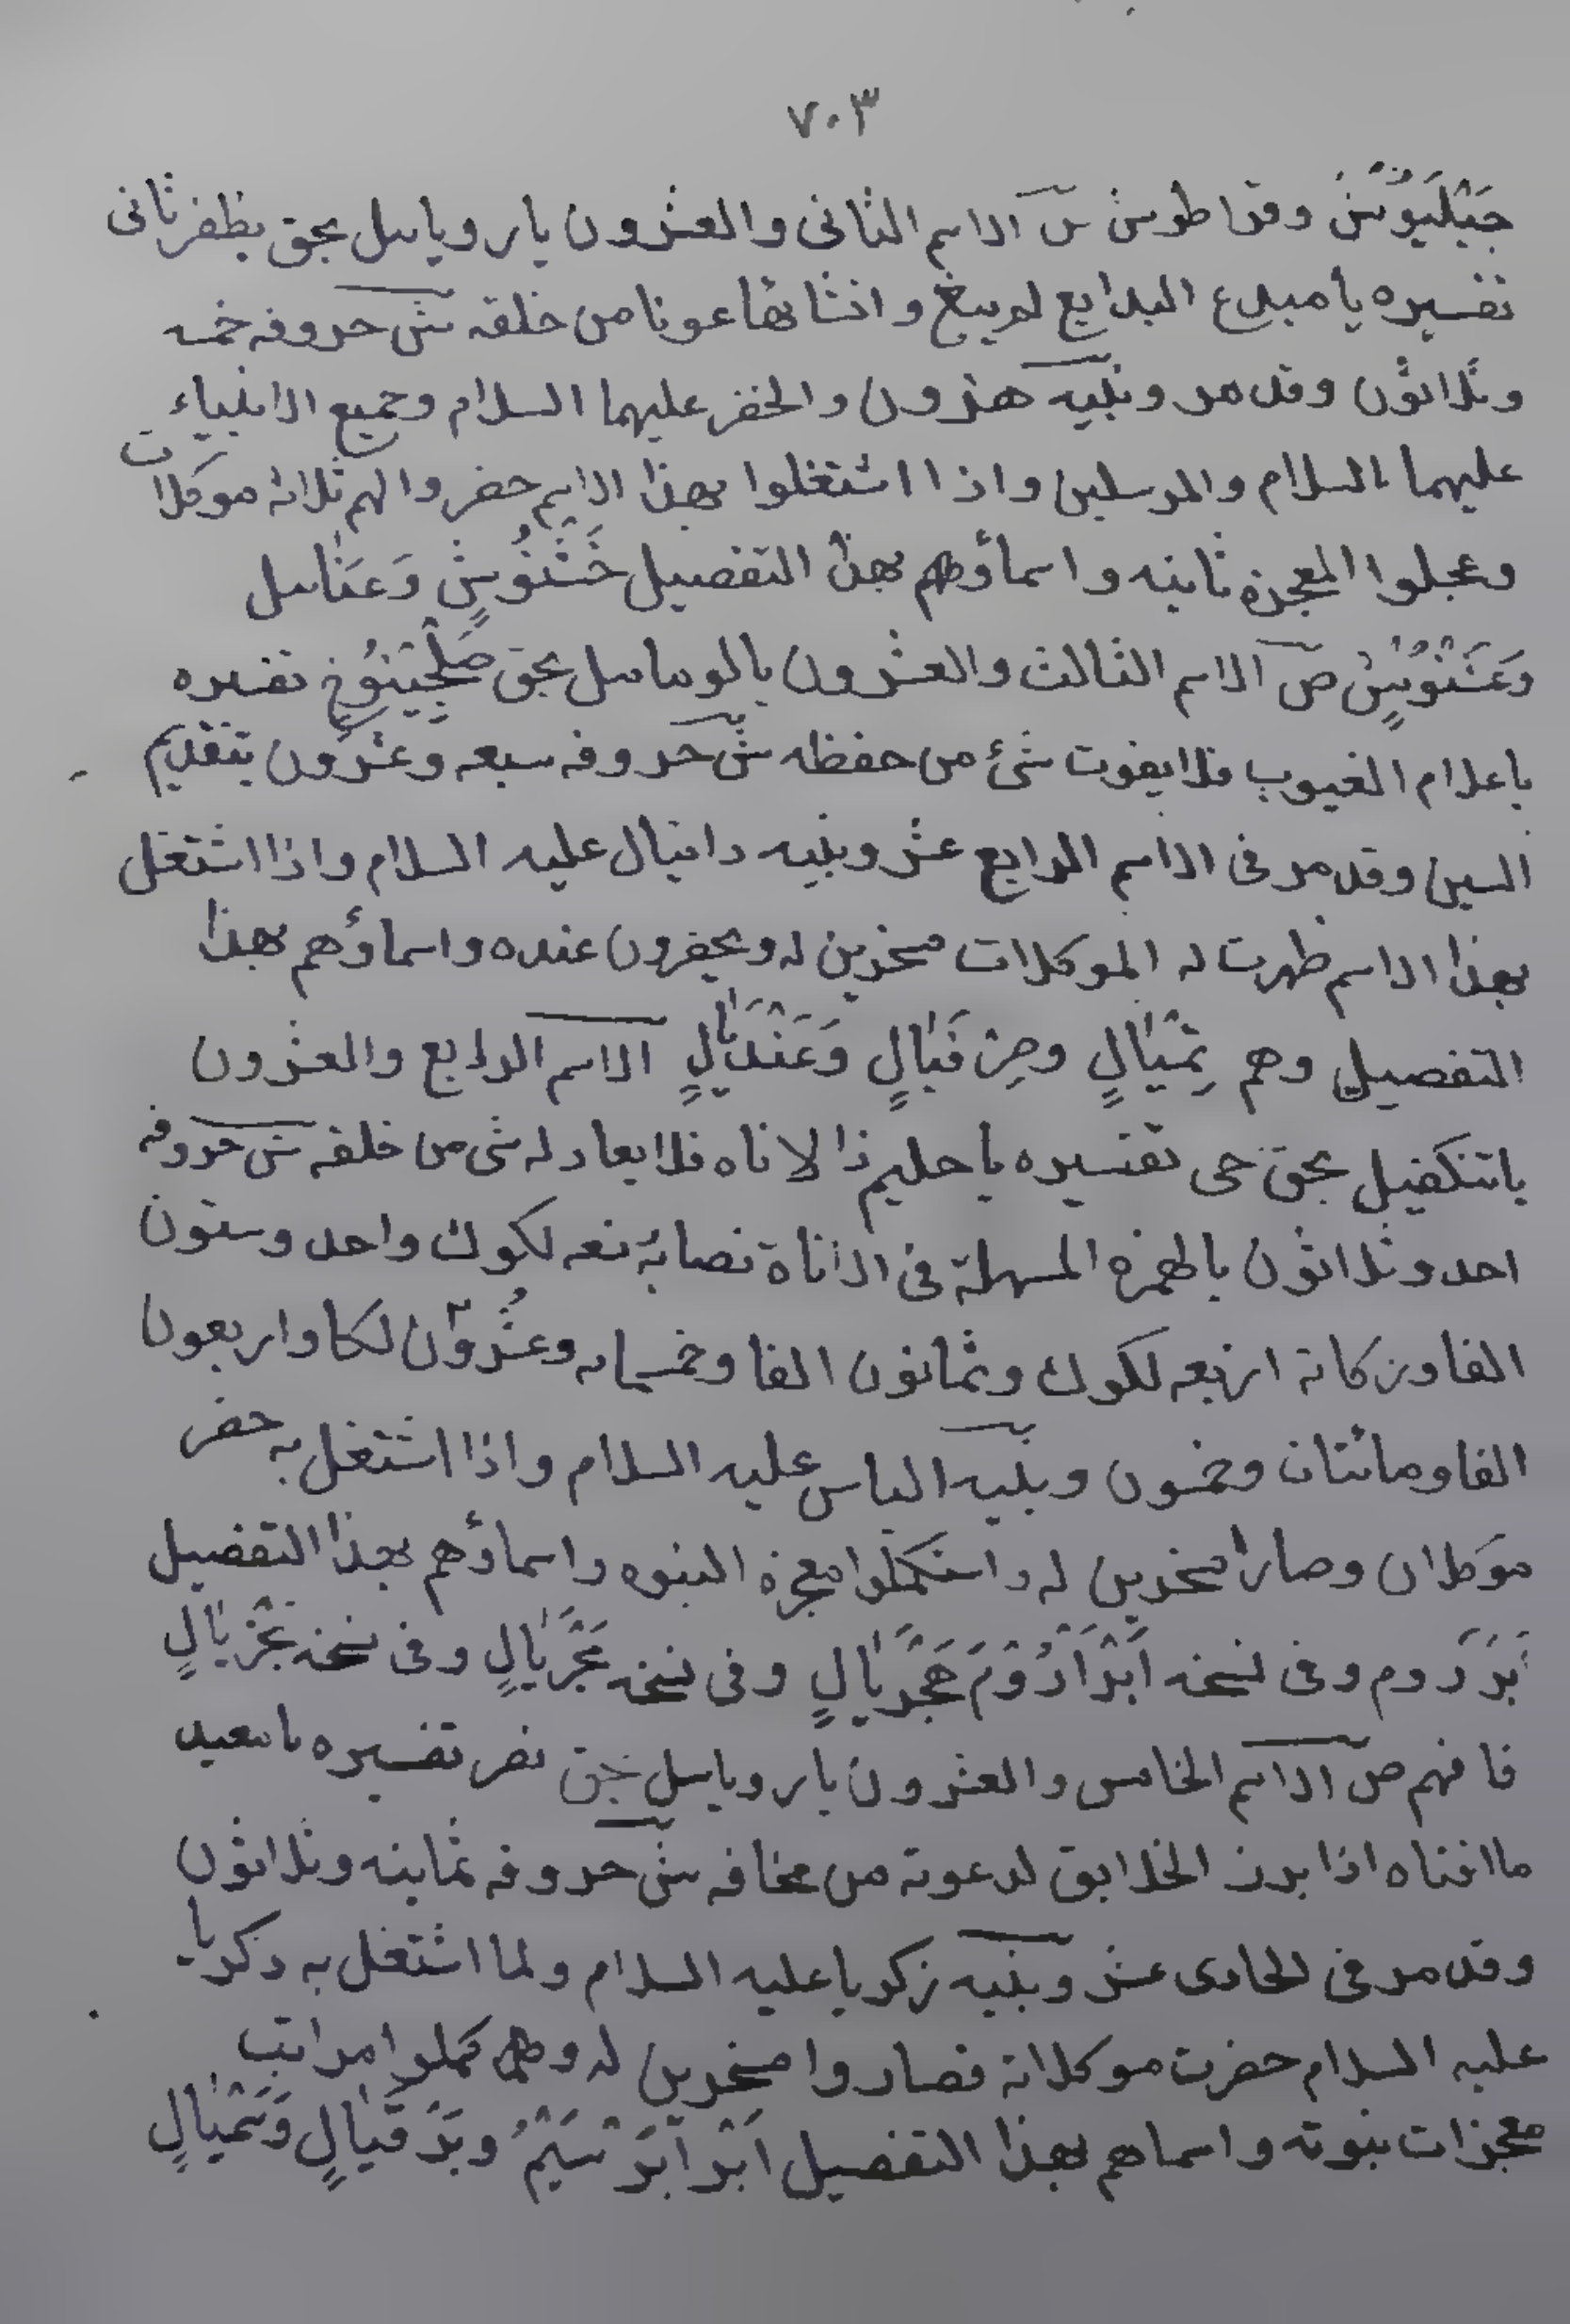 ٧٠٣
جَبْلَيُوْشٍ وقاطوش ش الاسم الثانى والعشرون يا روياىىل بحق يظفرثانى
تفسيره يا مبدع البدايع لم يبغ و انشائها عونا من خلقه ش حروفه خمسه
وثلاثون وقد مر ونبيه هرون والخضر عليهما السلام وجميع الانبياء
عليهما السلام والمرسلين واذا اشتغلوا بهذا الاسم حضر والهم ثلاثة موكلات
وعجلوا المعجزة ثانيه واسماؤهم بهذا التفصيل خَشْنُوْشٍ وَعَنَاىىل
وَعَنْتُوْشٍ ص الاسم الثالث والعشرون يا لوماىىل بحق تفسيره
يا علام الغيوب فلا يفوت شئ من حفظه ش حروفه سبعه وعشرون بتقديم
السين وقد مر فى الاسم الرابع عشر ونبيه دانيال عليه السلام واذا اشتغل
بهذا الاسم ظهرت له الموكلات مسخرين له ويحضرون عنده واسماؤهم بهذا
التفصيل وهم تِمْيَالٍ وحِزْقَيَالٍ وَعَنْدَيَالٍ الاسم الرابع والعشرون
يا تنكفيل بحق حى تفسيره يا حليم ذا الاناه فلا يعادله شى من خلقه ش حروفه
احد وثلاثون بالهمزه المسهلة فى الاناة نصابه تسعه لكوك واحد وستون
الفا وزكاته اربعه لكوك وثمانون الفا وخمسمائه وعشرون لكا واربعون
الفا ومائتان وخمسون ونبيه الياس عليه السلام واذا اشتغل به حضر
موكلان وصارا مسخرين له واستكملوا معجزة النبوه واسماؤهم بهذا التفصيل
اَبَرْدَوم وفى نسخه اَبْرَاَدْوَمَ هَجْرَيَالٍ وفى نسخه مَجْرَيَالٍ وفى نسخه نَجْرَيَالٍ
فافهم ص الاسم الخامس والعشرون يا روياىىل بحق نفر تفسيره يا معيد
ما افناه اذا برز الخلايق لدعوته من مخافه ش حروفه ثمانيه وثلاثون
وقد مر فى الحادى عشر ونبيه زكريا عليه السلام ولما اشتغل به زكريا
عليه السلام حضرت موكلاته فصاروا مسخرين له وهم كملوا مراتب
معجزات نبوته واسماهم بهذا التفصيل اَبْرَاَبَرْ سَيَمُ وبَرْقَيَالٍ وَسَمْيَالٍ